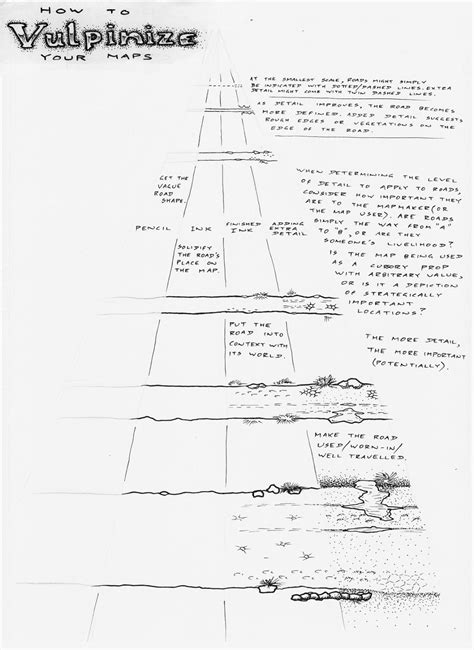 HOW TO
Vulpinize
YOUR MAPS
AT THE SMALLEST SCALE, ROADS MIGHT SIMPLY
BE INDICATED WITH DOTTED/DASHED LINES. EXTRA
DETAIL MIGHT COME WITH TWIN DASHED LINES.
AS DETAIL IMPROVES, THE ROAD BECOMES
MORE DEFINED. ADDED DETAIL SUGGESTS
ROUGH EDGES OR VEGETATIONS ON THE
EDGE OF THE ROAD.
GET THE
VALUE
ROAD
SHAPE.
WHEN DETERMINING THE LEVEL
OF DETAIL TO APPLY TO ROADS,
CONSIDER HOW IMPORTANT THEY
ARE TO THE MAPMAKER (OR
THE MAP USER). ARE ROADS
SIMPLY THE WAY FROM "A"
TO "B", OR ARE THEY
SOMEONE'S LIVELIHOOD?
IS THE MAP BEING USED
AS A CURORY PROP
WITH ARBITRARY VALUE,
OR IS IT A DEPICTION
OF STRATEGICALLY
IMPORTANT
LOCATIONS?
PENCIL
INK
FINISHED
INK
ADDING
EXTRA
DETAIL
SOLIDIFY
THE ROAD'S
PLACE ON
THE MAP.
PUT THE
ROAD INTO
CONTEXT WITH
ITS WORLD.
THE MORE DETAIL,
THE MORE IMPORTANT
(POTENTIALLY).
MAKE THE ROAD
USED/WORN-IN/
WELL TRAVELLED.